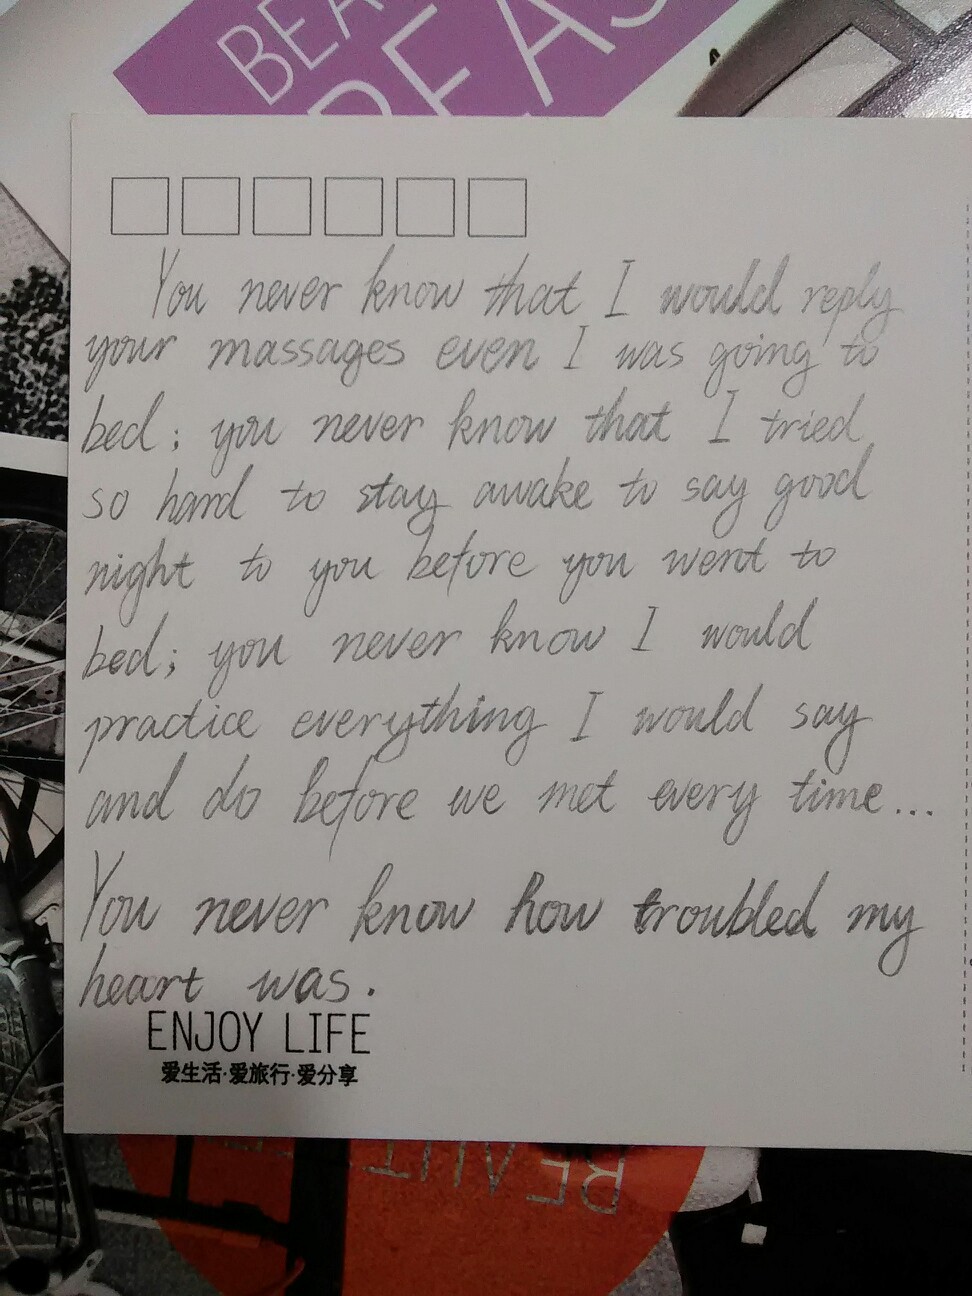 BEA
REAS
You never know that I would reply
your massages even I was going to
bed; you never know that I tried
so hard to stay awake to say good
night to you before you went to
bed; you never know I would
practice everything I would say
and do before we met every time...
You never know how troubled my
heart was.
ENJOY LIFE
爱生活·爱旅行·爱分享
BEAUT